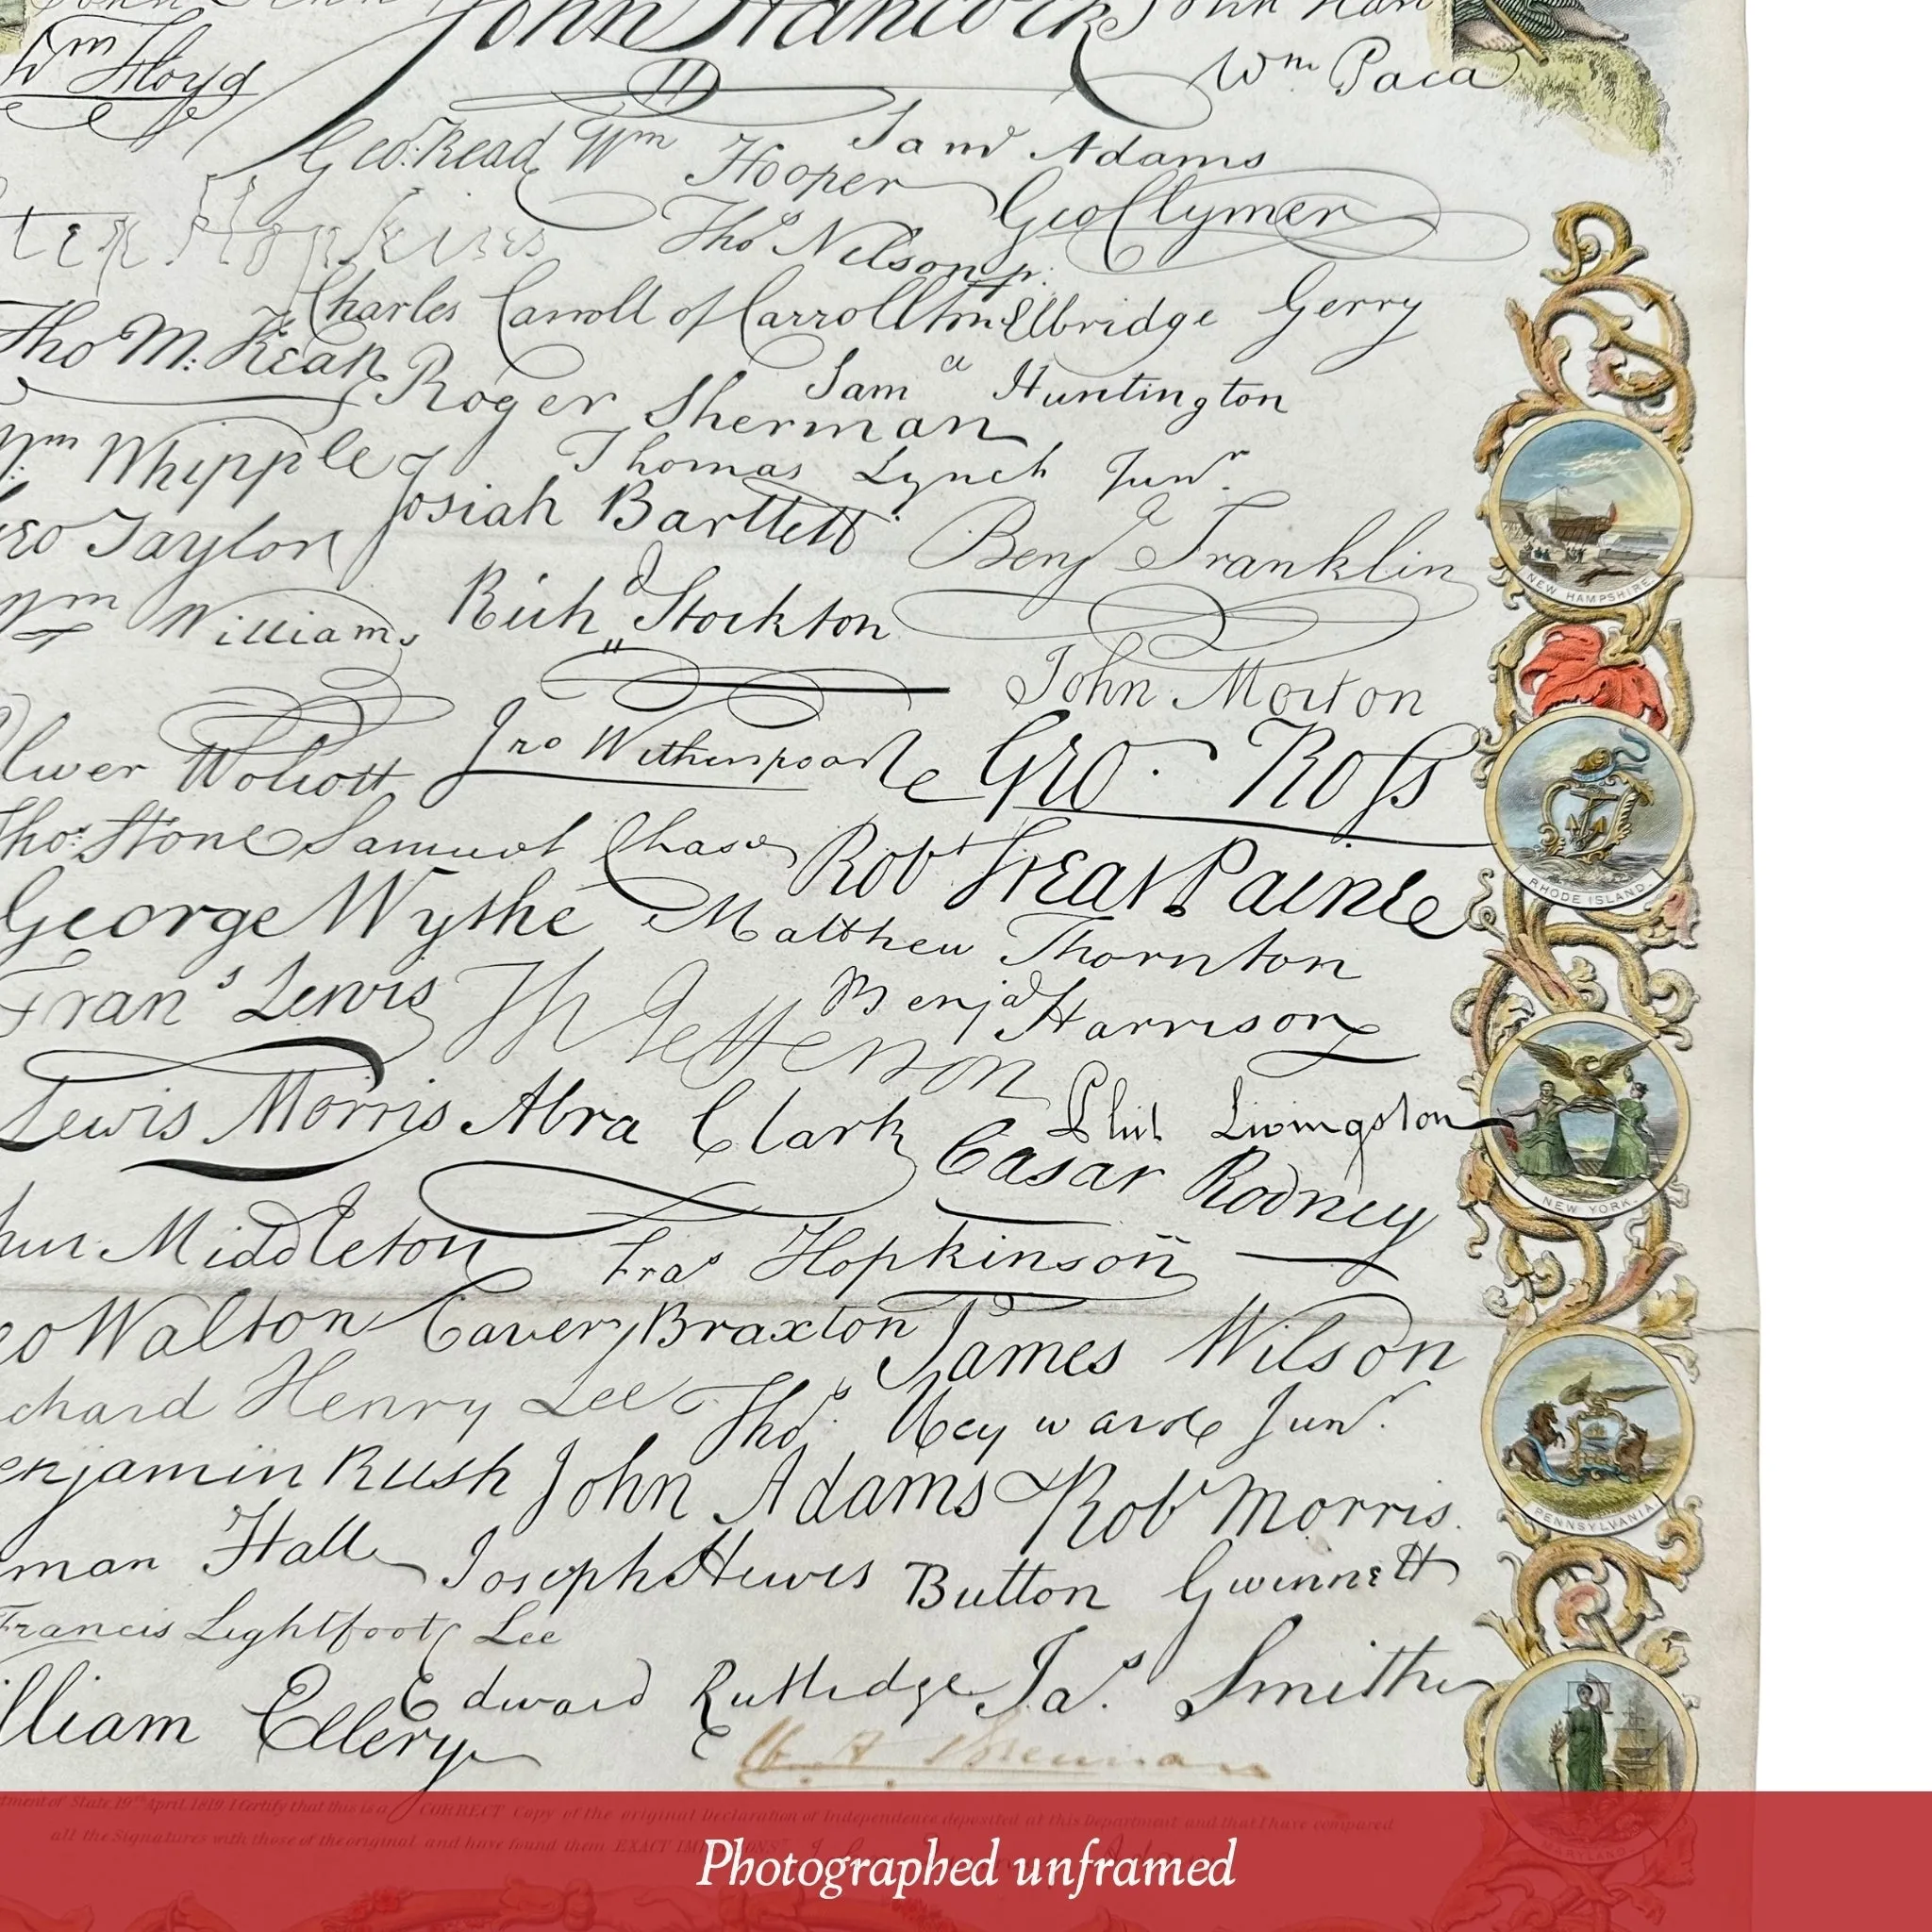 John Hancock John Hart
Wm Floyd
Wm Paca
Geo. Read Wm Hooper Saml Adams
Geo Clymer
Step Hopkins Thos Nelson jr.
Charles Carroll of Carrollton Elbridge Gerry
Tho M: Kean Roger Sherman Saml Huntington
Wm Whipple Thomas Lynch Junr.
Geo Taylor Josiah Bartlett Benja Franklin
Wm Williams Richd Stockton
John Morton
Oliver Wolcott Jno Witherspoon Geo. Ross
Thos. Stone Samuel Chase Robt Treat Paine
George Wythe Matthew Thornton
Frans Lewis Th Jefferson Benja Harrison
Lewis Morris Abra Clark Phil. Livingston
Cæsar Rodney
Arthur Middleton Fras Hopkinson
Geo Walton Carter Braxton James Wilson
Richard Henry Lee Thos. Heyward Junr.
Benjamin Rush John Adams Robt Morris
Lyman Hall Joseph Hewes Button Gwinnett
Francis Lightfoot Lee
William Ellery Edward Rutledge Jas. Smith
NEW HAMPSHIRE.
RHODE ISLAND.
NEW YORK.
PENNSYLVANIA
MARYLAND.
Department of State 19th April 1819. I Certify that this is a CORRECT Copy of the original Declaration of Independence deposited at this Department and that I have compared
all the Signatures with those of the original and have found them EXACT IMITATIONS.
Photographed unframed